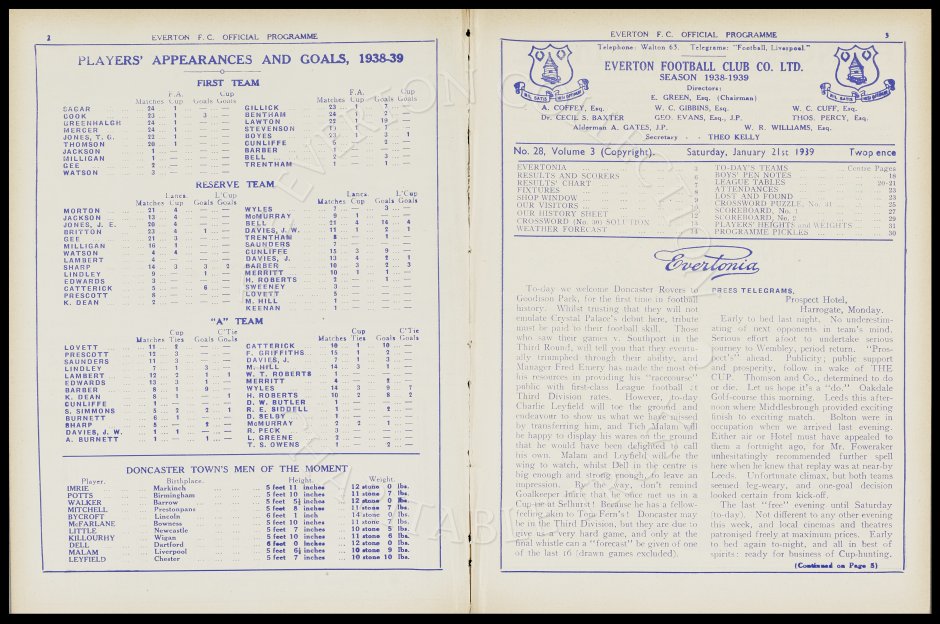 2 EVERTON F.C. OFFICIAL PROGRAMME
PLAYERS' APPEARANCES AND GOALS, 1938-39
FIRST TEAM
F.A. Cup
Matches Cup Goals Goals
SAGAR ... 24 1 ... — ... —
COOK ... 23 1 ... 3 ... —
GREENHALGH 24 1 ... — ... —
MERCER ... 24 1 ... — ... —
JONES, T. G. 22 1 ... — ... —
THOMSON ... 20 1 ... — ... —
JACKSON ... 1 ... — ... — ... —
MILLIGAN ... 1 ... — ... — ... —
GEE ... 2 ... — ... — ... —
WATSON ... 3 ... — ... — ... —
F.A. Cup
Matches Cup Goals Goals
GILLICK ... 23
BENTHAM ... 24 1 ... 2
LAWTON ... 22 1 19
STEVENSON
BOYES ... 23 1 3 1
CUNLIFFE
BARBER ... 1
BELL
TRENTHAM
RESERVE TEAM
Lancs. L'Cup
Matches Cup Goals Goals
MORTON ... 21 4
JACKSON ... 13 4
JONES, J. E. 20 4
BRITTON ... 23 4 1
GEE ... 21 3
MILLIGAN ... 16 1
WATSON ... 4 4
LAMBERT ... 4
SHARP ... 14 3 3 2
LINDLEY ... 9 ... 1
EDWARDS ... 3
CATTERICK ... 5 ... 6
PRESCOTT
K. DEAN ... 2
Lancs. L'Cup
Matches Cup Goals Goals
WYLES
McMURRAY ... 9 1
BELL ... 21 4 14 4
DAVIES, J. W. 11 1 2 1
TRENTHAM
SAUNDERS
CUNLIFFE ... 15 3 9
DAVIES, J. ... 13 4 2 1
BARBER ... 10 3 2 3
MERRITT ... 10 1 1
H. ROBERTS
SWEENEY ... 3
LOVETT
M. HILL ... 1
KEENAN ... 1
"A" TEAM
Cup C'Tie
Matches Ties Goals Goals
LOVETT ... 11 2
PRESCOTT ... 12 3
SAUNDERS ... 11 3
LINDLEY ... 7 1 3
LAMBERT ... 12 2 1 1
EDWARDS ... 13 3 1
BARBER ... 8 1 9
K. DEAN ... 8 1 ... 1
CUNLIFFE ... 1
S. SIMMONS ... 5 2 2 1
BURNETT ... 6 1
SHARP ... 5 ... 2
DAVIES, J. W. 1 1
A. BURNETT ... 1 ... 1
Cup C'Tie
Matches Ties Goals Goals
CATTERICK ... 10 1 10
F. GRIFFITHS ... 15 1 2
DAVIES, J. ... 7 1 3
M. HILL ... 14 3 1
W. T. ROBERTS 1
MERRITT ... 4 ... 2
WYLES ... 14 3 9 7
H. ROBERTS ... 10 2 8 2
D. W. BUTLER ... 1
R. E. SIDDELL ... 1 ... 2
D. SELBY ... 1
McMURRAY ... 2 2 1
R. PECK ... 1
L. GREENE ... 2
T. S. OWENS ... 2 ... 2
DONCASTER TOWN'S MEN OF THE MOMENT
Player. Birthplace. Height. Weight.
IMRIE ... Markinch ... 5 feet 11 inches ... 12 stone 0 lbs.
POTTS ... Birmingham ... 5 feet 10 inches ... 11 stone 7 lbs.
WALKER ... Barrow ... 5 feet 5½ inches ... 12 stone 0 lbs.
MITCHELL ... Prestonpans ... 5 feet 8 inches ... 12 stone 0 lbs.
BYCROFT ... Lincoln ... 6 feet 1 inch ... 14 stone 0 lbs.
McFARLANE ... Bowness ... 5 feet 10 inches ... 11 stone 7 lbs.
LITTLE ... Newcastle ... 5 feet 7 inches ... 10 stone 5 lbs.
KILLOURHY ... Wigan ... 5 feet 10 inches ... 11 stone 6 lbs.
DELL ... Dartford ... 6 feet 0 inches ... 12 stone 0 lbs.
MALAM ... Liverpool ... 5 feet 6½ inches ... 10 stone 9 lbs.
LEYFIELD ... Chester ... 5 feet 7 inches ... 10 stone 10 lbs.
EVERTON F.C. OFFICIAL PROGRAMME 3
Telephone: Walton 63. Telegrams: "Football, Liverpool."
EVERTON FOOTBALL CLUB CO. LTD.
SEASON 1938-1939
Directors:
E. GREEN, Esq. (Chairman)
A. COFFEY, Esq. W. C. GIBBINS, Esq. W. C. CUFF, Esq.
Dr. CECIL S. BAXTER GEO. EVANS, Esq., J.P. THOS. PERCY, Esq.
Alderman A. GATES, J.P. W. R. WILLIAMS, Esq.
Secretary - THEO KELLY
No. 28, Volume 3 (Copyright). Saturday, January 21st 1939 Twopence
EVERTONIA
RESULTS AND SCORERS
RESULTS' CHART
FIXTURES
SHOP WINDOW
OUR VISITORS
OUR HISTORY SHEET
CROSSWORD (No. 30) SOLUTION
WEATHER FORECAST
TO-DAY'S TEAMS ... Centre Pages
BOYS' PEN NOTES ... 18
LEAGUE TABLES ... 20-21
ATTENDANCES ... 23
LOST AND FOUND ... 23
CROSSWORD PUZZLE, No. 31 ... 25
SCOREBOARD, No. 1 ... 27
SCOREBOARD, No. 2 ... 29
PLAYERS' HEIGHTS and WEIGHTS ... 31
PROGRAMME PICKLES ... 30
Evertonia
To-day we welcome Doncaster Rovers to
Goodison Park, for the first time in football
history. Whilst trusting that they will not
emulate Crystal Palace's debut here, tribute
must be paid to their football skill. Those
who saw their games v. Southport in the
Third Round, will tell you that they eventu-
ally triumphed through their ability, and
Manager Fred Emery has made the most of
his resources in providing his "racecourse"
public with first-class League football at
Third Division rates. However, to-day
Charlie Leyfield will toe the ground and
endeavour to show us what we have missed
by transferring him, and Tich Malam will
be happy to display his wares on the ground
that he would have been delighted to call
his own. Malam and Leyfield will be the
wing to watch, whilst Dell in the centre is
big enough and strong enough to leave an
impression. By the way, don't remind
Goalkeeper Imrie that he once met us in a
Cup-tie at Selhurst! Because he has a fellow-
feeling akin to Tom Fern's! Doncaster may
be in the Third Division, but they are due to
give us a very hard game, and only at the
final whistle can a "forecast" be given of one
of the last 16 (drawn games excluded).
PRESS TELEGRAMS.
Prospect Hotel,
Harrogate, Monday.
Early to bed last night. No underestim-
ating of next opponents in team's mind.
Serious effort afoot to undertake serious
journey to Wembley, period return. "Pros-
pect's" ahead. Publicity; public support
and prosperity, follow in wake of THE
CUP. Thomson and Co., determined to do
or die. Let us hope it's a "do." Oakdale
Golf-course this morning. Leeds this after-
noon where Middlesbrough provided exciting
finish to exciting match. Bolton were in
occupation when we arrived last evening.
Either air or Hotel must have appealed to
them a fortnight ago, for Mr. Foweraker
unhesitatingly recommended further spell
here when he knew that replay was at near-by
Leeds. Unfortunate climax, but both teams
seemed leg-weary, and one-goal decision
looked certain from kick-off.
The last "free" evening until Saturday
(to-day). Not different to any other evening
this week, and local cinemas and theatres
patronised freely at maximum prices. Early
to bed again to-night, and all in best of
spirits: ready for business of Cup-hunting.
(Continued on Page 5)